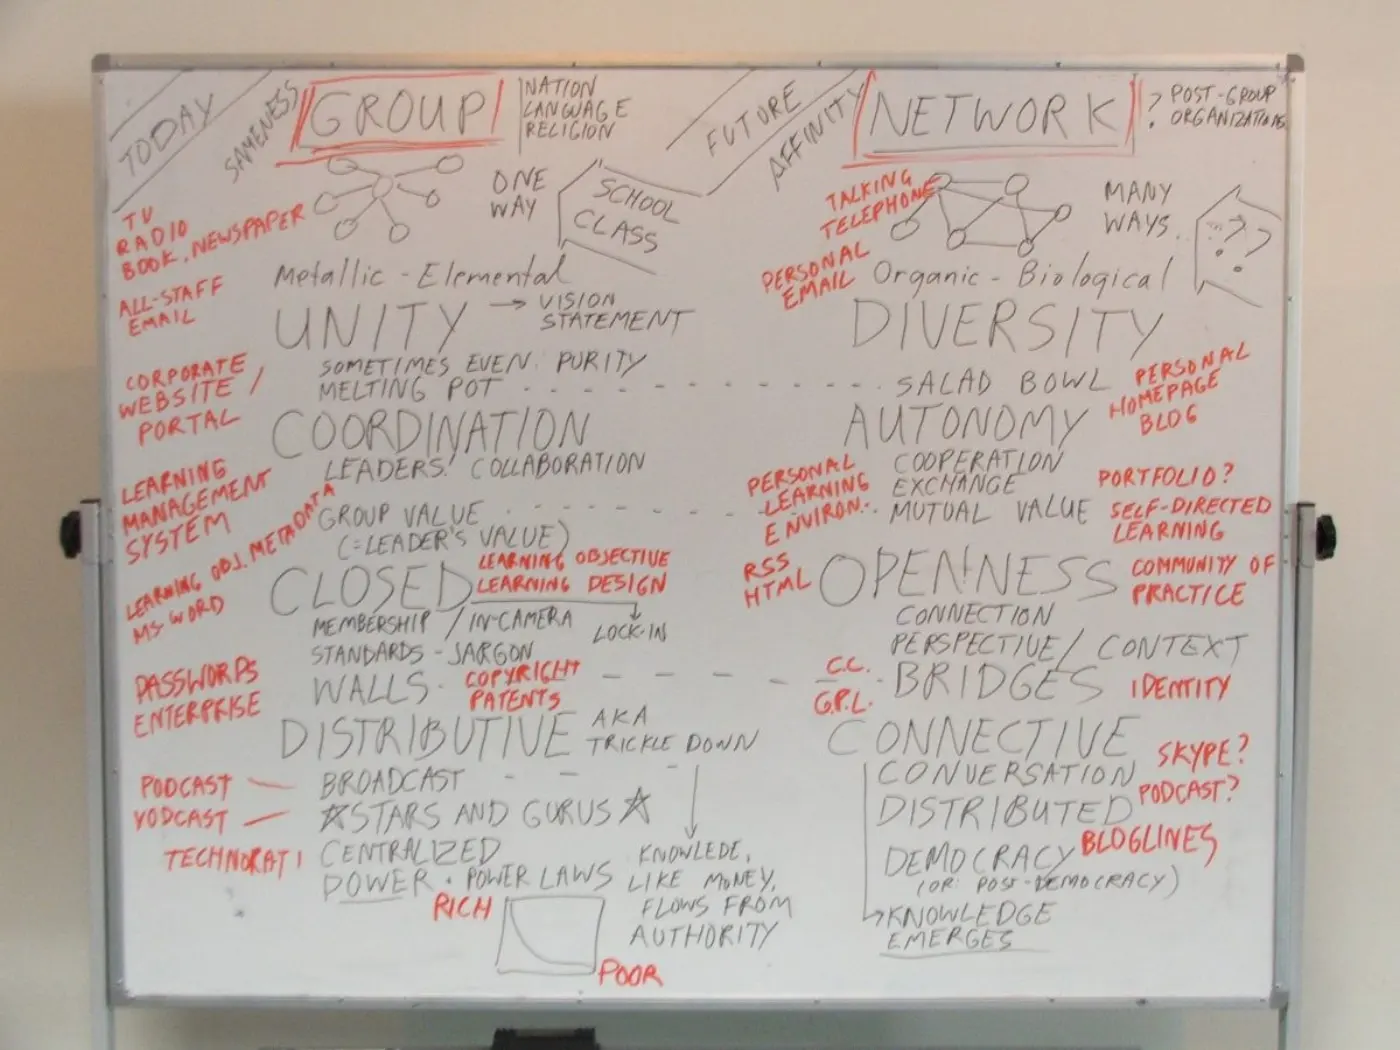 TODAY
SAMENESS
GROUP
NATION
LANGUAGE
RELIGION
ONE
WAY
SCHOOL
CLASS
TV
RADIO
BOOK, NEWSPAPER
Metallic - Elemental
ALL-STAFF
EMAIL
UNITY → VISION
STATEMENT
SOMETIMES EVEN: PURITY
MELTING POT
CORPORATE
WEBSITE /
PORTAL
COORDINATION
LEADERS! COLLABORATION
LEARNING
MANAGEMENT
SYSTEM
GROUP VALUE
(=LEADER'S VALUE)
LEARNING OBJ. METADATA
MS-WORD
CLOSED
LEARNING OBJECTIVE
LEARNING DESIGN
MEMBERSHIP / IN-CAMERA
LOCK-IN
STANDARDS - JARGON
WALLS.
COPYRIGHT
PATENTS
PASSWORDS
ENTERPRISE
DISTRIBUTIVE AKA
TRICKLE DOWN
PODCAST
VODCAST
BROADCAST
☆STARS AND GURUS☆
TECHNORATI
CENTRALIZED
POWER • POWER LAWS
RICH
POOR
KNOWLEDE,
LIKE MONEY,
FLOWS FROM
AUTHORITY
FUTURE
AFFINITY
NETWORK
? POST-GROUP
ORGANIZATIONS
TALKING
TELEPHONE
MANY
WAYS.
? ?
PERSONAL
EMAIL
Organic - Biological
DIVERSITY
SALAD BOWL
PERSONAL
HOMEPAGE
BLOG
AUTONOMY
COOPERATION
EXCHANGE
MUTUAL VALUE
PERSONAL
LEARNING
ENVIRON..
PORTFOLIO?
SELF-DIRECTED
LEARNING
RSS
HTML
OPENNESS
COMMUNITY OF
PRACTICE
CONNECTION
PERSPECTIVE / CONTEXT
C.C.
G.P.L.
BRIDGES
IDENTITY
CONNECTIVE
CONVERSATION
SKYPE?
DISTRIBUTED
PODCAST?
DEMOCRACY
BLOGLINES
(OR: POST-DEMOCRACY)
KNOWLEDGE
EMERGES